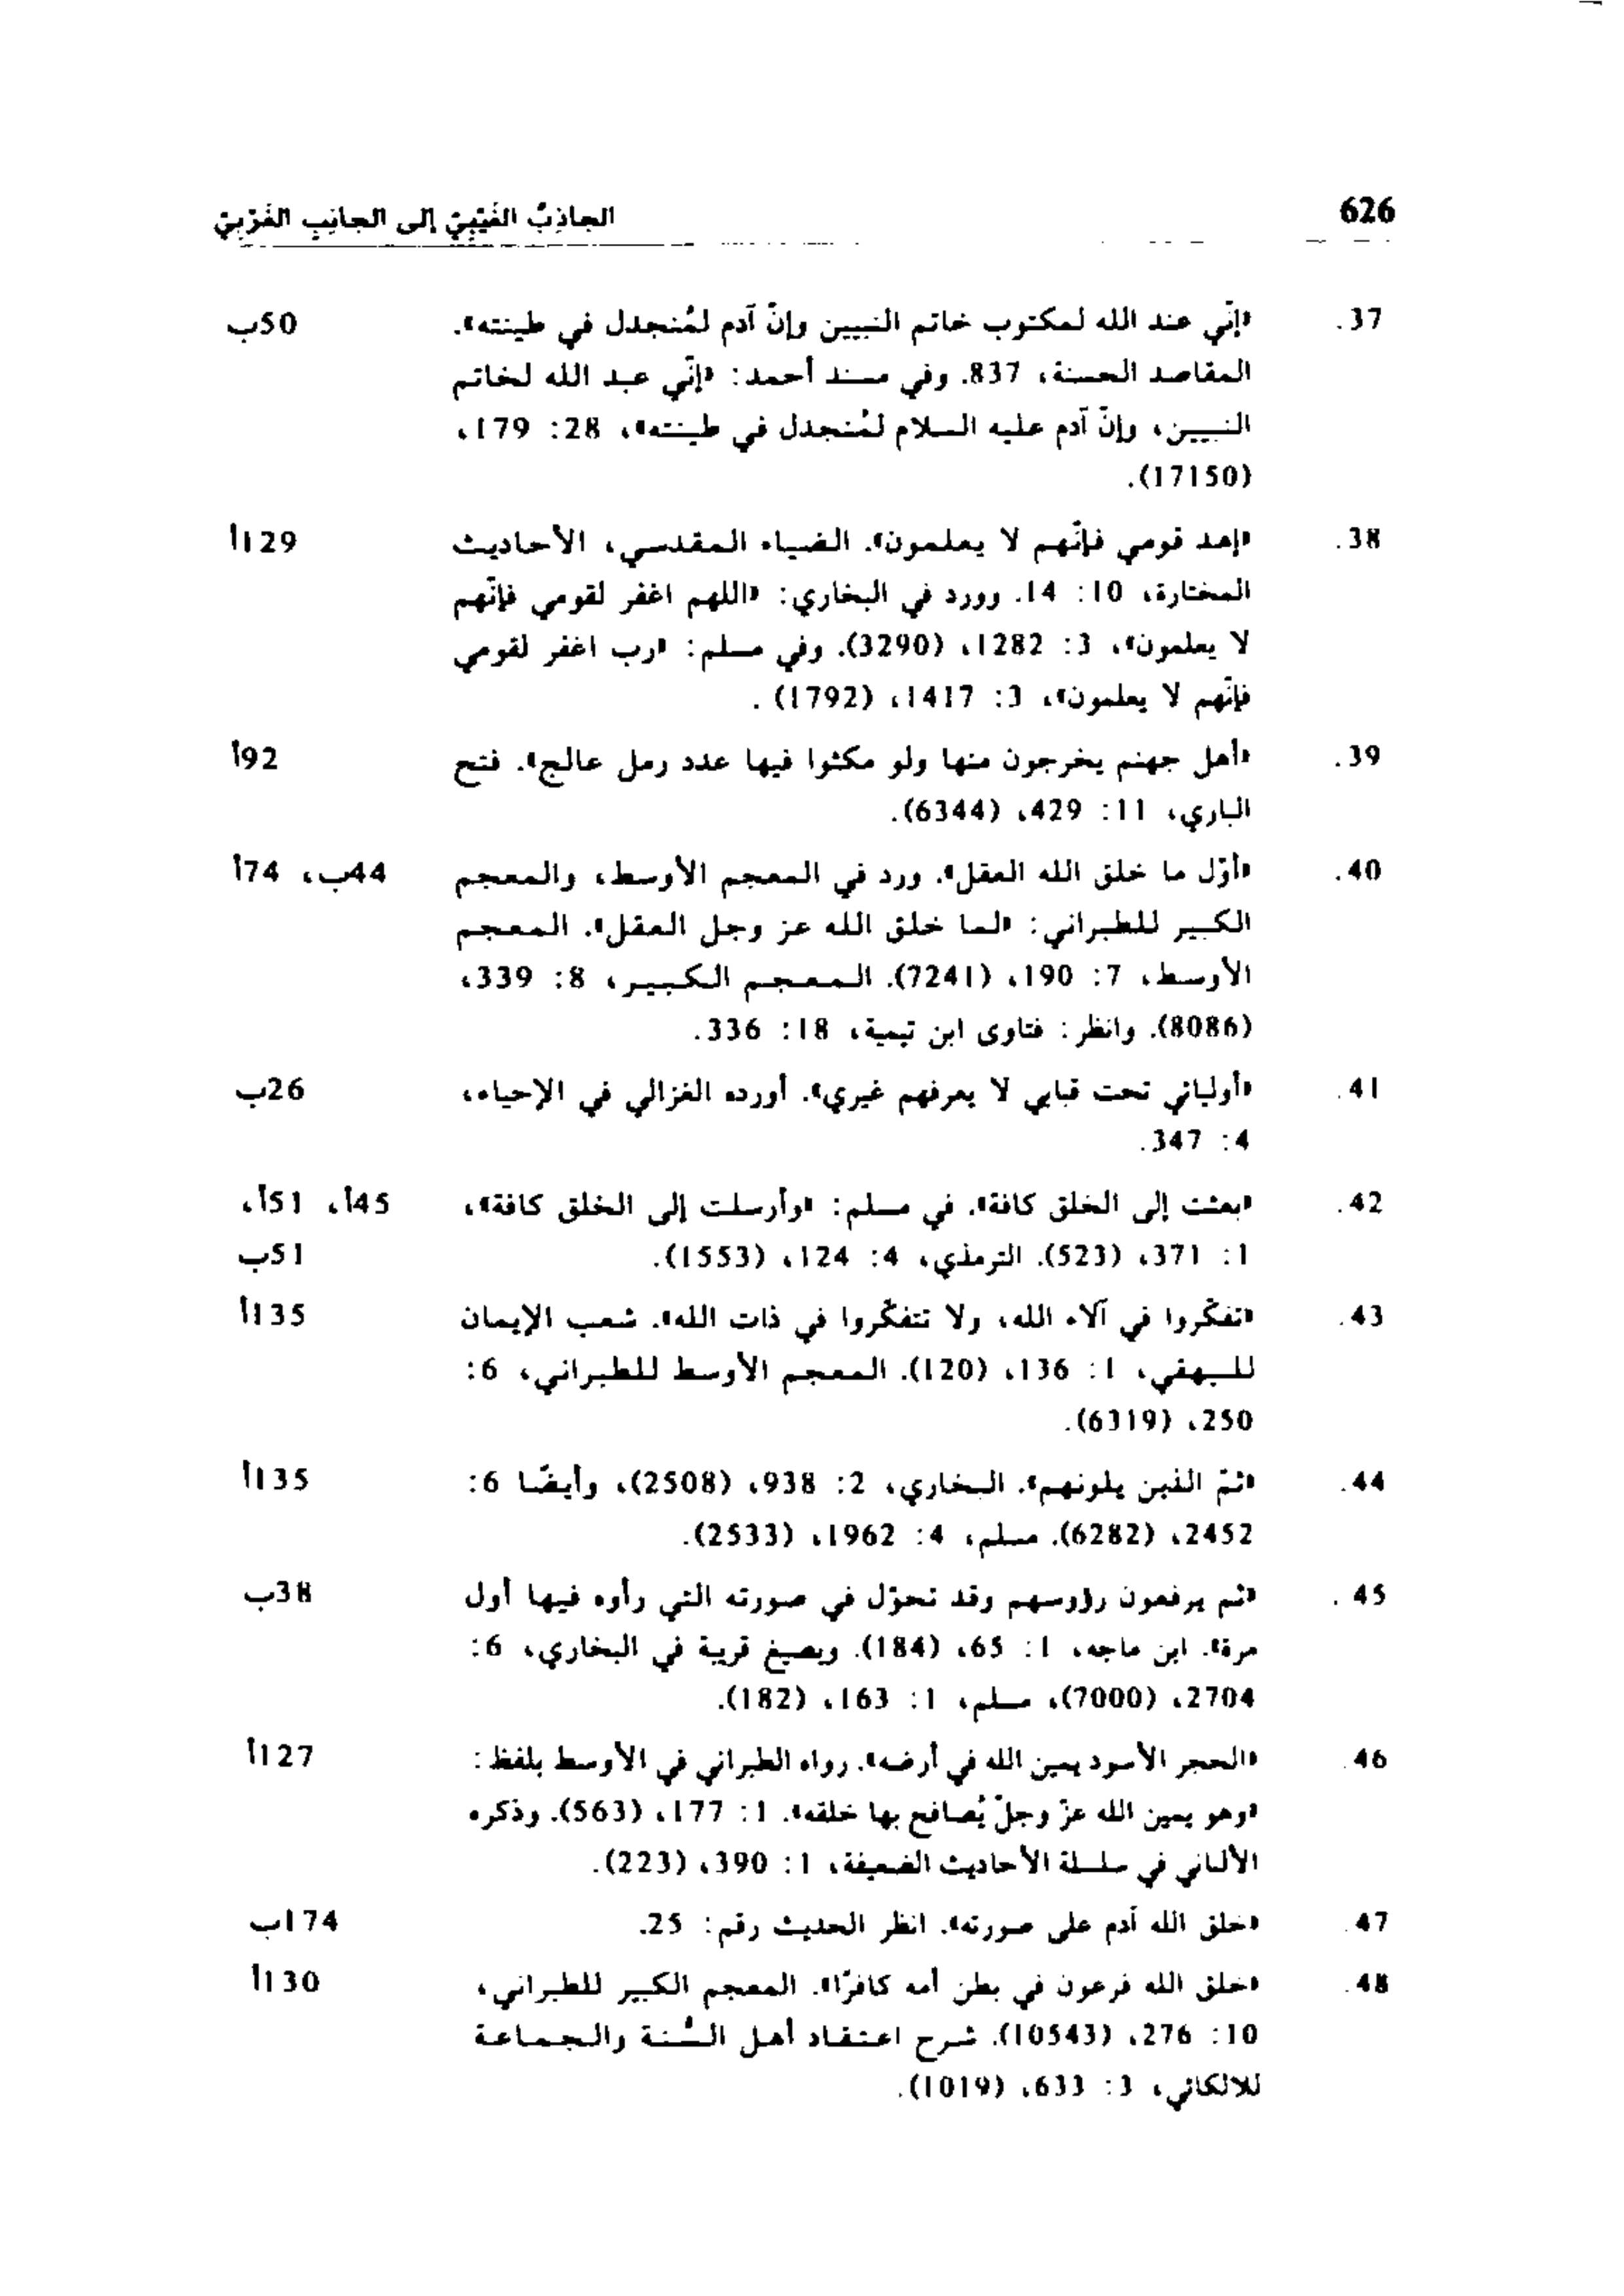 626 الجاذِبُ الغَيْبِيّ إلى الجانِبِ الغَرْبِيّ
37. «إنّي عند الله لمكتوب خاتم النبيين وإنّ آدم لمُنجدل في طينته». 50ب
المقاصد الحسنة، 837. وفي مسند أحمد: «إنّي عبد الله لخاتم
النبيين، وإنّ آدم عليه السلام لمُنجدل في طينته»، 28: 179،
(17150).
38. «إهد قومي فإنّهم لا يعلمون». الضياء المقدسي، الأحاديث 129أ
المختارة، 10: 14. وورد في البخاري: «اللهم اغفر لقومي فإنّهم
لا يعلمون»، 3: 1282، (3290). وفي مسلم: «رب اغفر لقومي
فإنّهم لا يعلمون»، 3: 1417، (1792).
39. «أهل جهنم يخرجون منها ولو مكثوا فيها عدد رمل عالج». فتح 92أ
الباري، 11: 429، (6344).
40. «أوّل ما خلق الله العقل». ورد في المعجم الأوسط، والمعجم 44ب، 74أ
الكبير للطبراني: «لما خلق الله عز وجل العقل». المعجم
الأوسط، 7: 190، (7241). المعجم الكبير، 8: 339،
(8086). وانظر: فتاوى ابن تيمية، 18: 336.
41. «أوليائي تحت قبابي لا يعرفهم غيري». أورده الغزالي في الإحياء، 26ب
4: 347.
42. «بعثت إلى الخلق كافة». في مسلم: «وأرسلت إلى الخلق كافة»، 45أ، 51أ،
1: 371، (523). الترمذي، 4: 124، (1553). 51ب
43. «تفكّروا في آلاء الله، ولا تتفكّروا في ذات الله». شعب الإيمان 135أ
للبيهقي، 1: 136، (120). المعجم الأوسط للطبراني، 6:
250، (6319).
44. «ثمّ الذين يلونهم». البخاري، 2: 938، (2508)، وأيضًا 6: 135أ
2452، (6282). مسلم، 4: 1962، (2533).
45. «ثم يرفعون رؤوسهم وقد تحوّل في صورته التي رأوه فيها أول 38ب
مرة». ابن ماجه، 1: 65، (184). وبصيغ قريبة في البخاري، 6:
2704، (7000)، مسلم، 1: 163، (182).
46. «الحجر الأسود يمين الله في أرضه». رواه الطبراني في الأوسط بلفظ: 127أ
«وهو يمين الله عزّ وجلّ يُصافح بها خلقه». 1: 177، (563). وذكره
الألباني في سلسلة الأحاديث الضعيفة، 1: 390، (223).
47. «خلق الله آدم على صورته». انظر الحديث رقم: 25. 174ب
48. «خلق الله فرعون في بطن أمه كافرًا». المعجم الكبير للطبراني، 130أ
10: 276، (10543). شرح اعتقاد أهل السُّنة والجماعة
للالكائي، 3: 633، (1019).